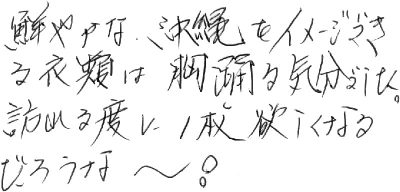 鮮やかな、沖縄をイメージでき
る衣類は胸踊る気分でした。
訪れる度に1枚欲しくなる
だろうな〜!